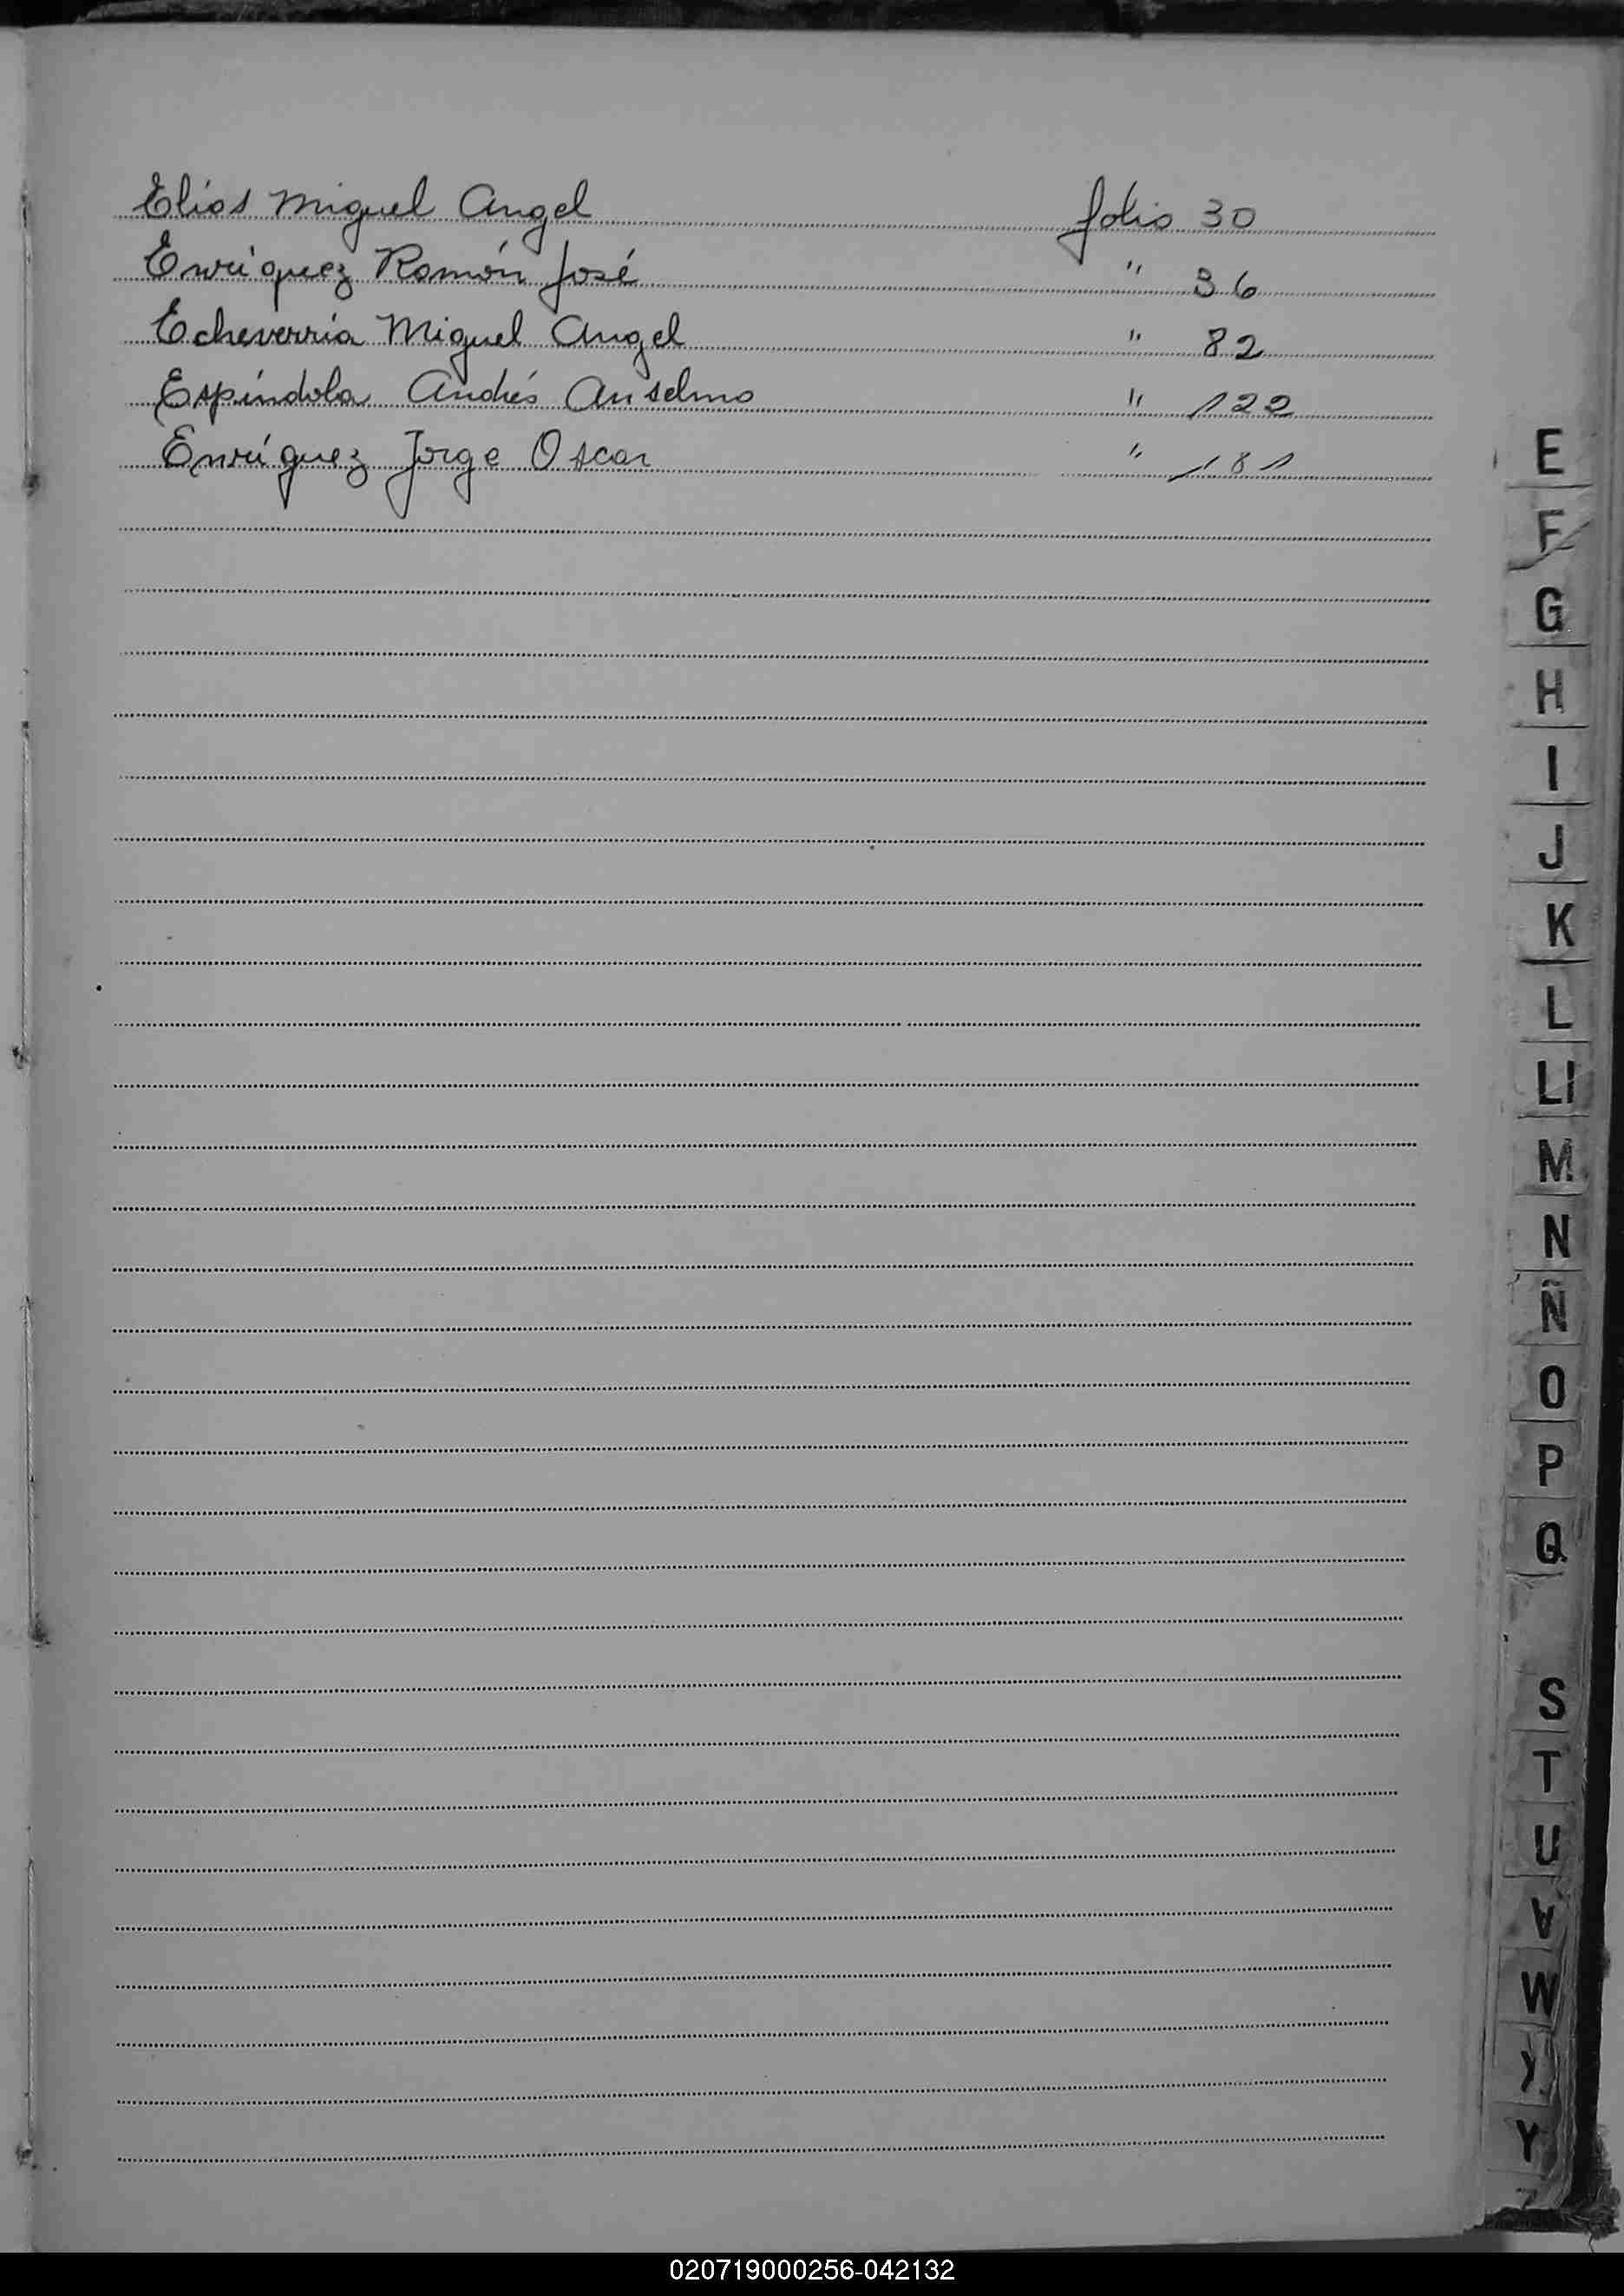 Elías Miguel Angel folio 30
Enríquez Ramón José " 36
Echeverría Miguel Angel " 82
Espíndola Andrés Anselmo " 122
Enríquez Jorge Oscar " 181
E
F
G
H
I
J
K
L
Ll
M
N
Ñ
O
P
Q
S
T
U
V
W
Y
Z
020719000256-042132